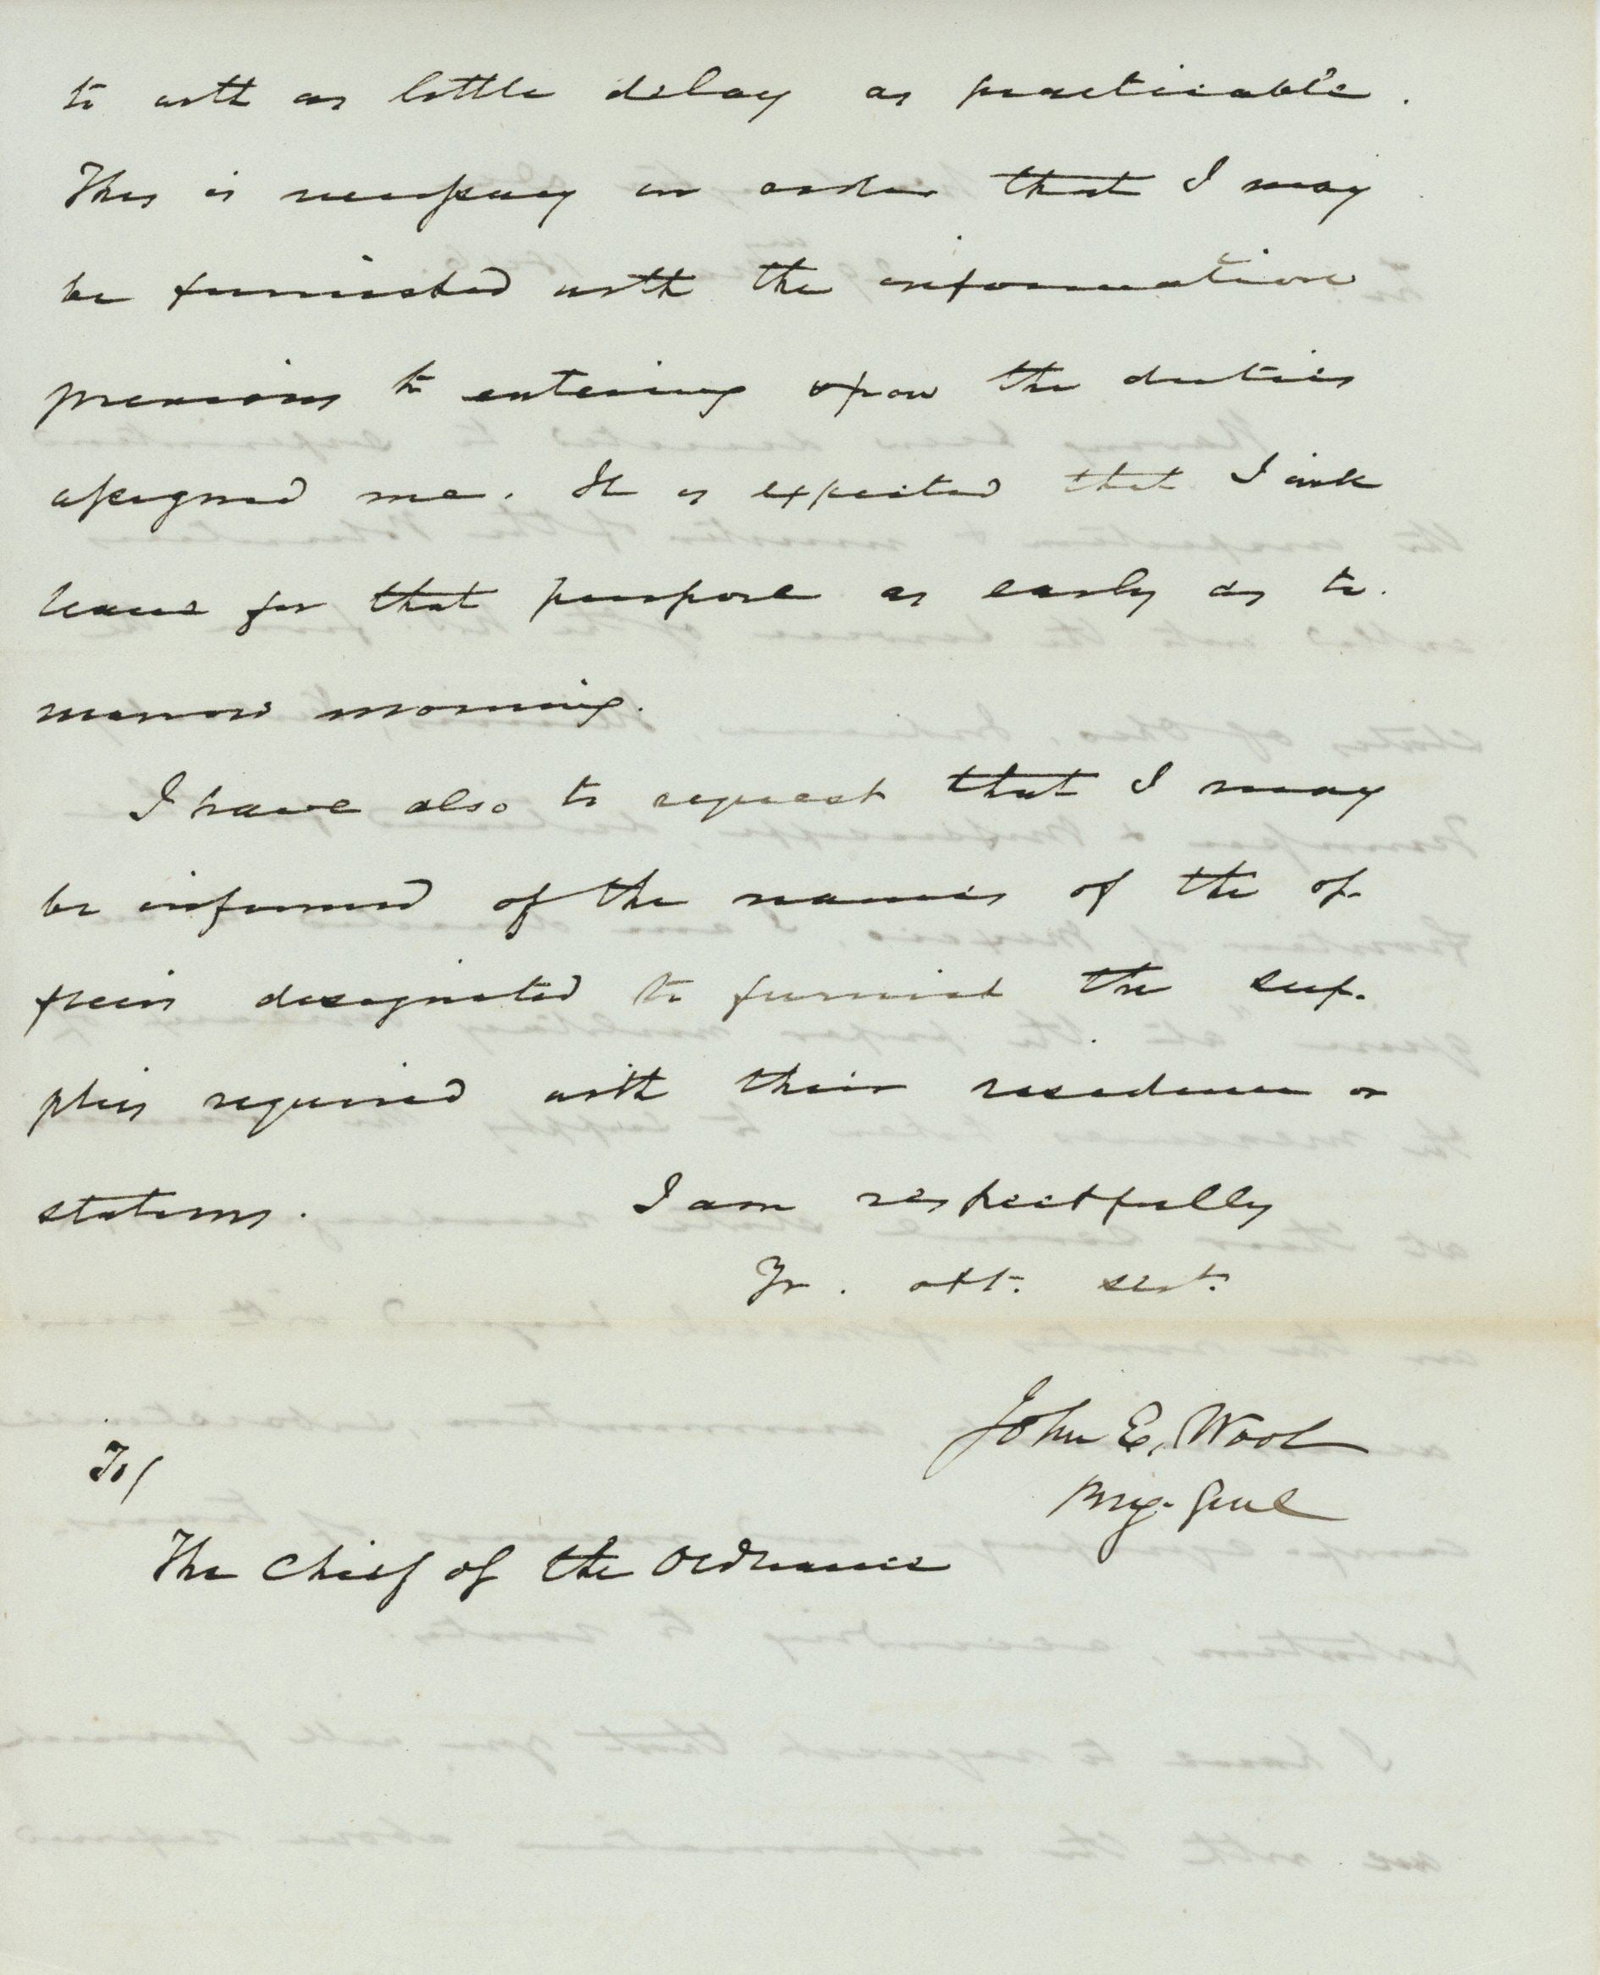 to with as little delay as practicable.
This is necessary in order that I may
be furnished with the information
previous to entering upon the duties
assigned me. It is expected that I will
leave for that purpose as early as to.
morrow morning.
I have also to request that I may
be informed of the names of the of-
ficers designated to furnish the sup-
plies required with their residence or
stations. I am respectfully
Yr. obt. sert.
John E. Wool
Brig. Genl
To/
The Chief of the Ordnance